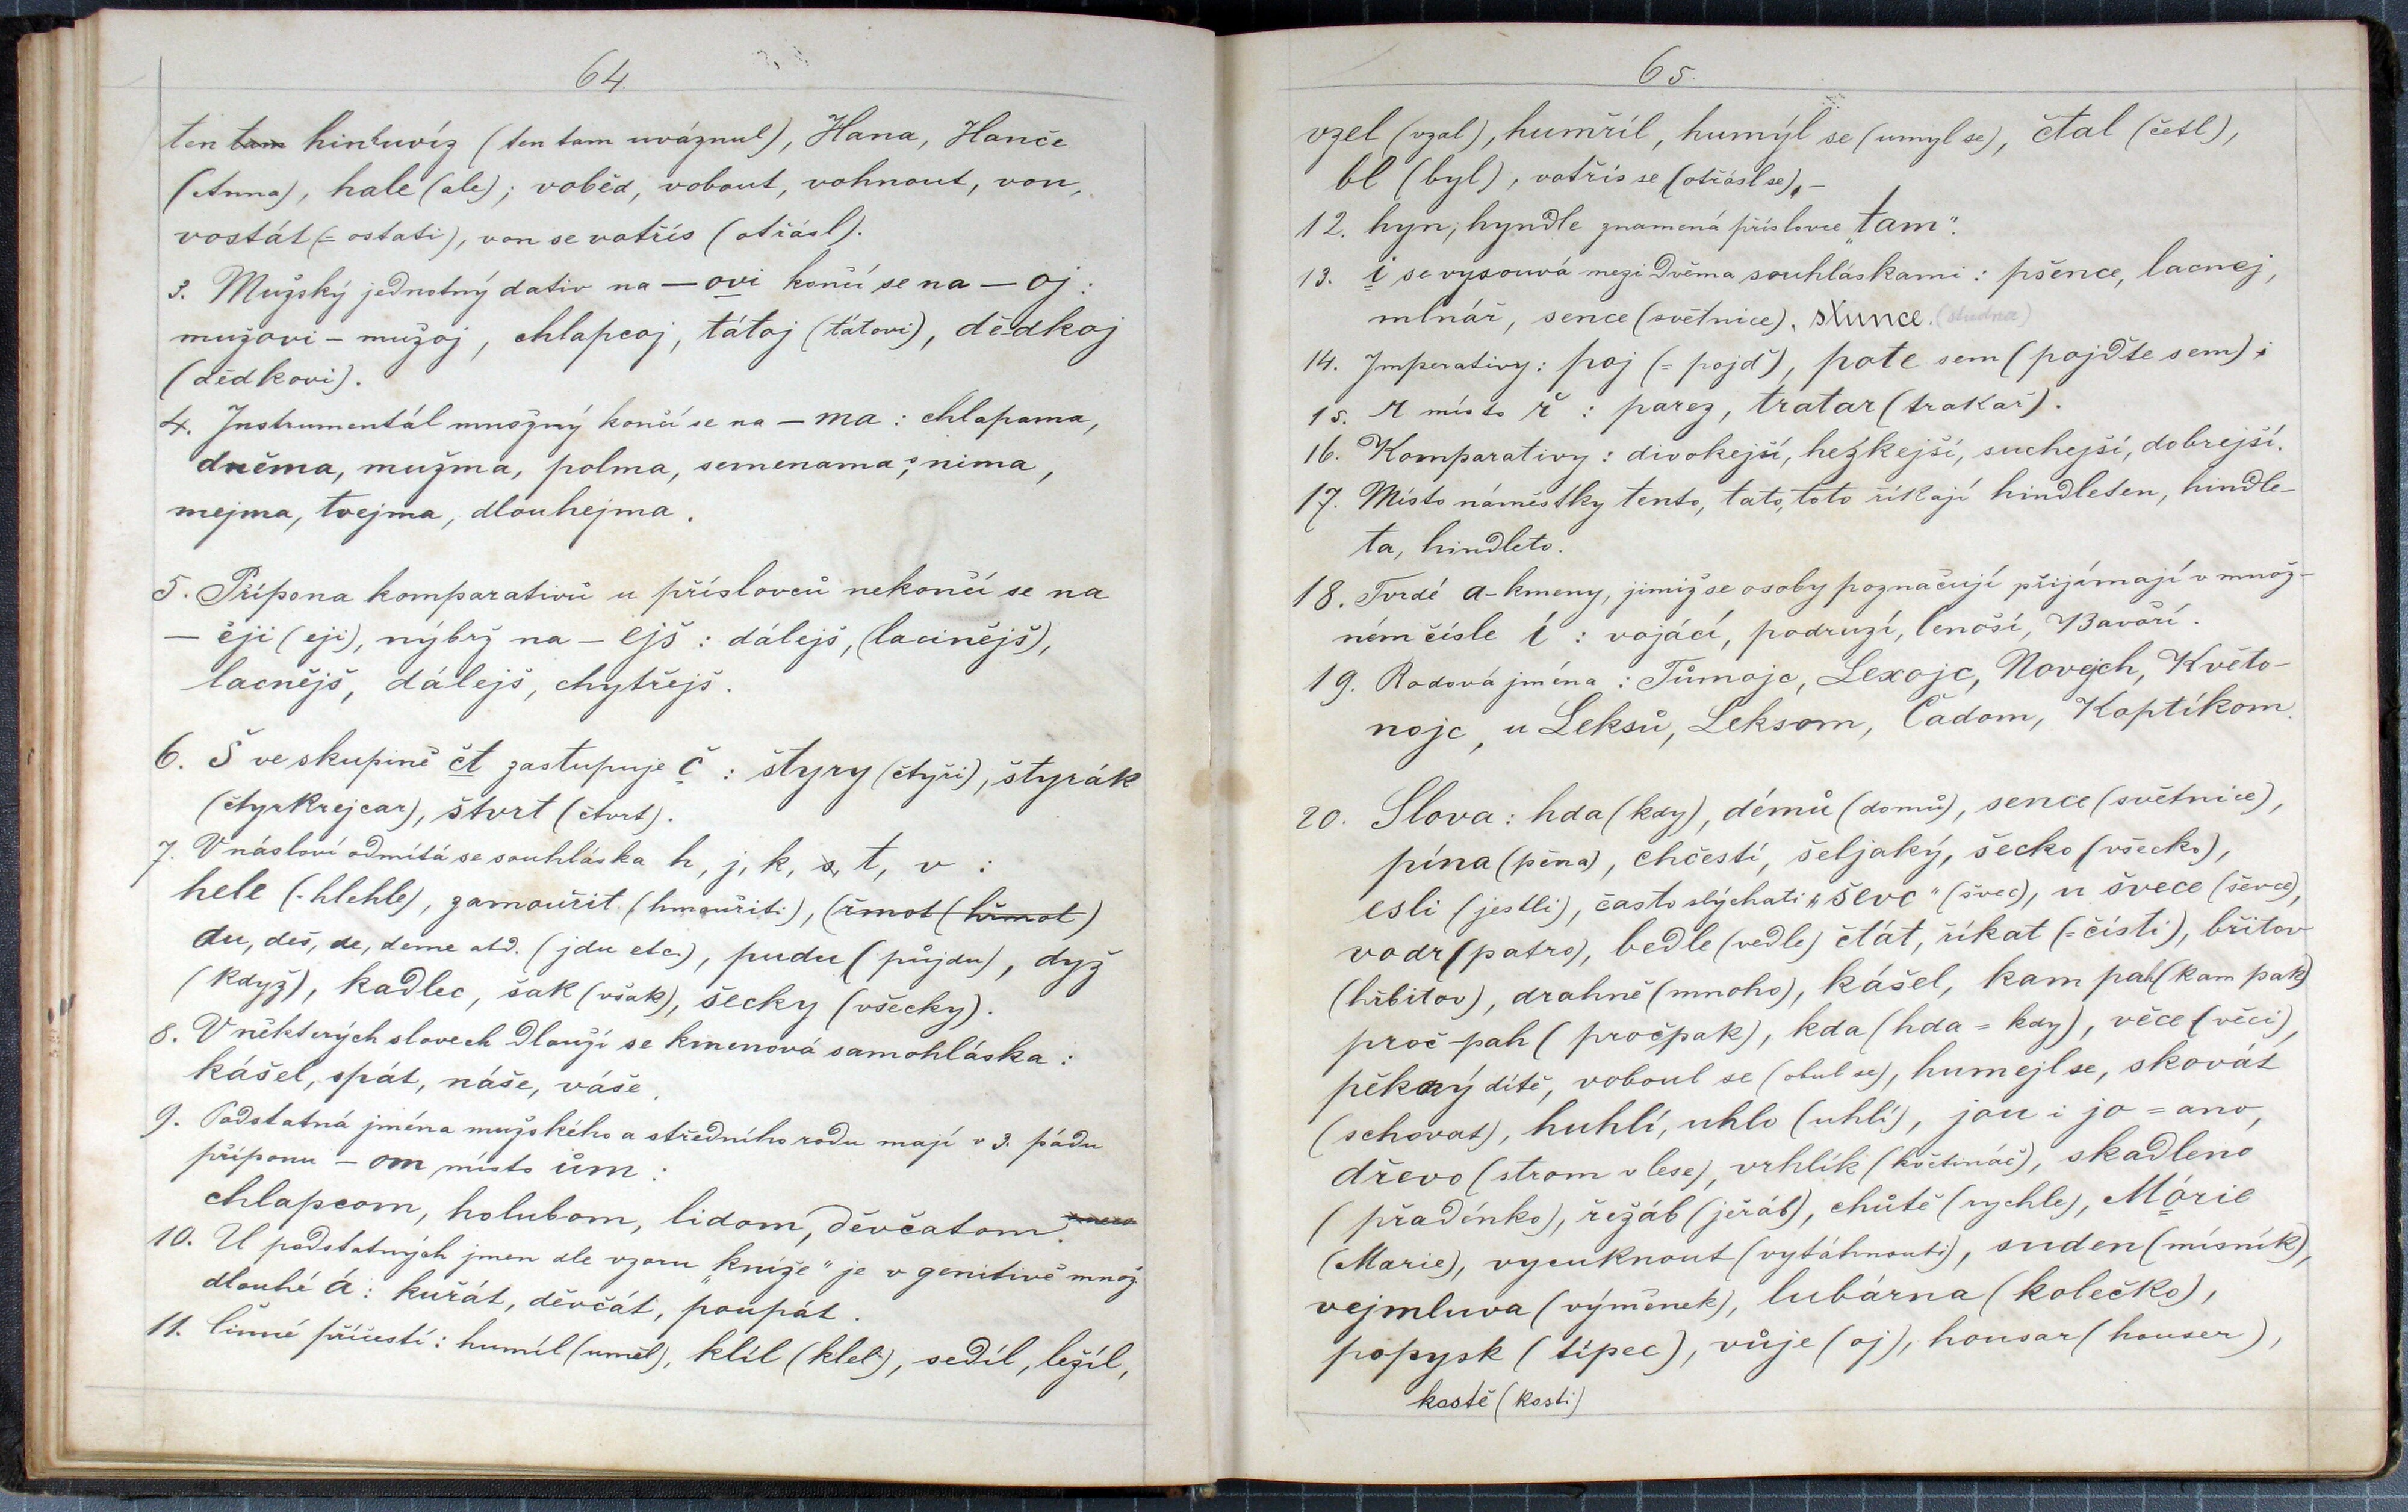 64.
ten tam hin huvíz (ten tam uváznul), Hana, Hanče
(Anna), hale (ale); voběd, vobout, vohnout, von,
vostát (= ostati), von se votřís (otřásl).
3. Mužský jednotný dativ na — ovi končí se na — oj:
mužovi – mužoj, chlapcoj, tátoj (tátovi), dědkoj
(dědkovi).
4. Instrumentál množný končí se na — ma: chlapama,
dněma, mužma, polma, semenama; s nima,
mejma, tvejma, dlouhejma.
5. Přípona komparativů u příslovců nekončí se na
— ěji (eji), nýbrž na — ejš: dálejš, (lacinějš),
lacnějš, dálejš, chytřejš.
6. Š ve skupině čt zastupuje č: štyry (čtyři), štyrák
(čtyrkrejcar), štvrt (čtvrt).
7. V násloví odmítá se souhláska h, j, k, s, t, v:
hele (- hlehle), zamouřit (hmouřiti), (řmot (hřmot)
du, deš, de, deme atd. (jdu etc.), pudu (půjdu), dyž
(když), kadlec, šak (však), šecky (všecky).
8. V některých slovech dlouží se kmenová samohláska:
kášel, spát, náše, váše.
9. Podstatná jména mužského a středního rodu mají v 3. pádu
příponu — om místo ům:
chlapcom, holubom, lidom, děvčatom.
10. U podstatných jmen dle vzoru „kníže" je v genitivě množ.
dlouhé á: kuřát, děvčát, poupát.
11. Činné příčestí: humíl (uměl), klíl (klel), sedíl, ležíl,
65.
vzel (vzal), humříl, humýl se (umyl se), čtal (četl),
bl (byl), votřís se (otřásl se), –
12. hyn, hyndle znamená příslovce „tam".
13. i se vysouvá mezi dvěma souhláskami: pšence, lacnej,
mlnář, sence (světnice), slunce. (studna)
14. Imperativy: poj (= pojď), pote sem (pojďte sem);
15. r místo ř: parez, tratar (trakař).
16. Komparativy: divokejší, hezkejší, suchejší, dobrejší.
17. Místo náměstky tento, tato, toto říkají hindleten, hindle-
ta, hindleto.
18. Tvrdé a-kmeny, jimiž se osoby poznačují přijímají v množ-
ném čísle í: vojácí, podruzí, lenoší, Bavoří.
19. Rodová jména: Tůmojc, Lexojc, Novejch, Květo-
nojc, u Leksů, Leksom, Čadom, Koptíkom.
20. Slova: hda (kdy), démů (domů), sence (světnice),
pína (pěna), chčestí, šeljaký, šecko (všecko),
esli (jestli), často slýchati „ševc" (švec), u švece (ševce),
vodr (patro), bedle (vedle) čtát, říkat (= čísti), břitov
(hřbitov), drahně (mnoho), kášel, kam pah (kam pak)
proč-pah (pročpak), kda (hda = kdy), věce (věci),
pěkný dítě, voboul se (obul se), humejl se, skovát
(schovat), huhlí, uhlo (uhlí), jou i jo = ano,
dřevo (strom v lese), vrhlík (květináč), skadleno
(přadénko), řežáb (jeřáb), chůtě (rychle), Mórie
(Marie), vycuknout (vytáhnouti), suden (mísník),
vejmluva (výměnek), lubárna (kolečko),
popysk (típec), vůje (oj), housar (houser),
kostě (kosti)